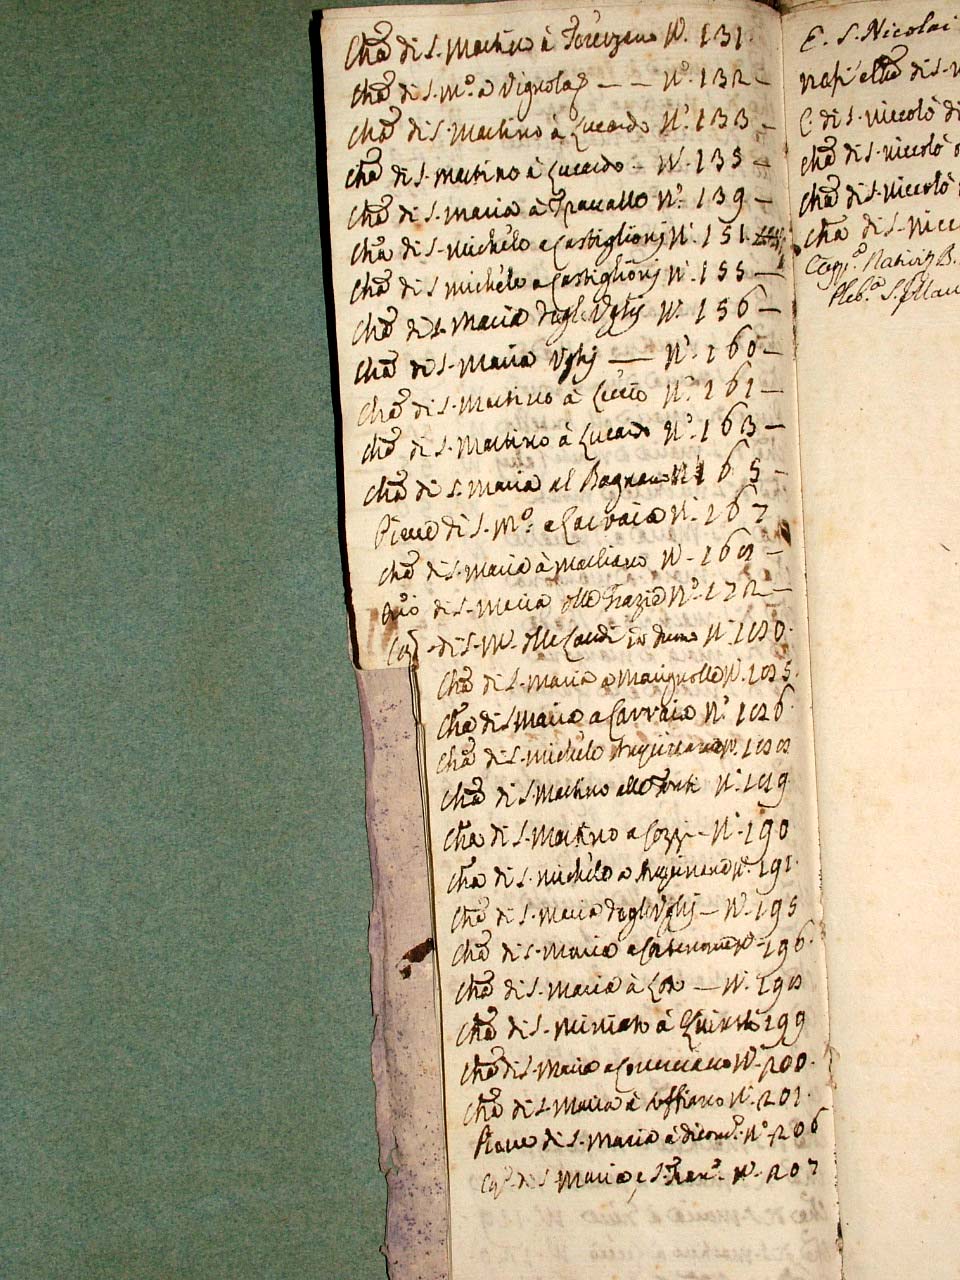 Chã di S. Martino à N.º 131.
Chã di S. M.ª a Vignola — — N.º 132 —
Chã di S. Martino à Lucardo N.º 133 —
Chã di S. Martino à Lucardo — N.º 135 —
Chã di S. Maria à Travalle N.º 139 —
Chã di S. Michele a Castiglionj N.º 151.
Chã di S. Michele a Castiglionj N.º 155 —
Chã di S. Maria degl'Vghj N.º 156 —
Chã di S. Maria Vghj — N.º 160 —
Chã di S. Martino à N.º 161 —
Chã di S. Martino à Lucardo N.º 163 —
Chã di S. Maria al Bagnano N.º 165 —
Pieve di S. M.ª a Carraia N.º 167
Chã di S. Maria à N.º 169 —
di S. Maria delle Grazie N.º 172 —
di S. M.ª N.º 180.
Chã di S. Maria a Marignolle N.º 185.
Chã di S. Maria a Carraia N.º 186
Chã di S. Michele N.º 188
Chã di S. Martino alle N.º 189
Chã di S. Martino a Cozzi — N.º 190
Chã di S. Michele a N.º 191.
Chã di S. Maria degl'Vghj — N.º 195
Chã di S. Maria a N.º 196.
Chã di S. Maria à — N.º 198
Chã di S. Miniato à Quinto 199
Chã di S. Maria a N.º 200.
Chã di S. Maria à Soffiano N.º 201.
Pieve di S. Maria à N.º 206
di S. Maria e S. Fran.º N.º 207
E. S. Nicolai
di S.
C di S. Niccolò di
Chã di S. Niccolò
Chã di S. Niccolò
Chã di S. Nicc
Capp.ª Nativit. B.
Pleb.ª S.